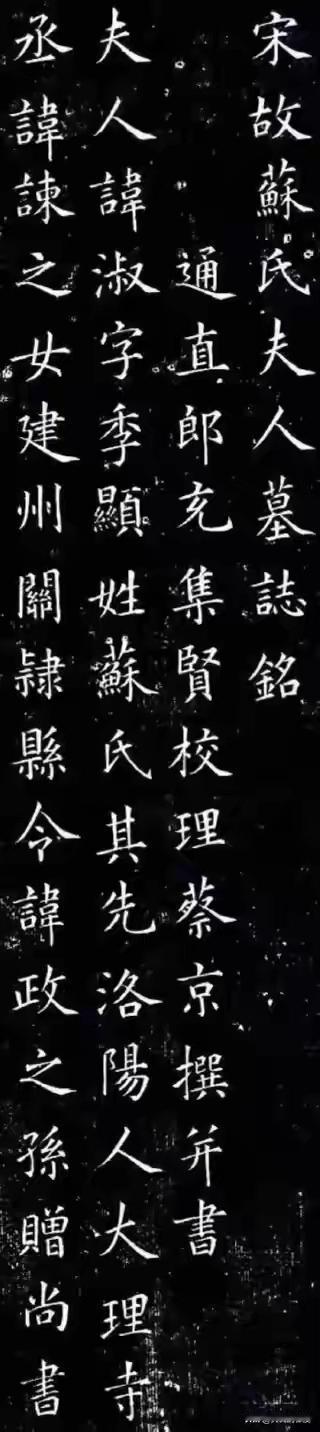 宋故蘇氏夫人墓誌銘
通直郎充集賢校理蔡京撰并書
夫人諱淑字季顯姓蘇氏其先洛陽人大理寺
丞諱諫之女建州關隸縣令諱政之孫贈尚書